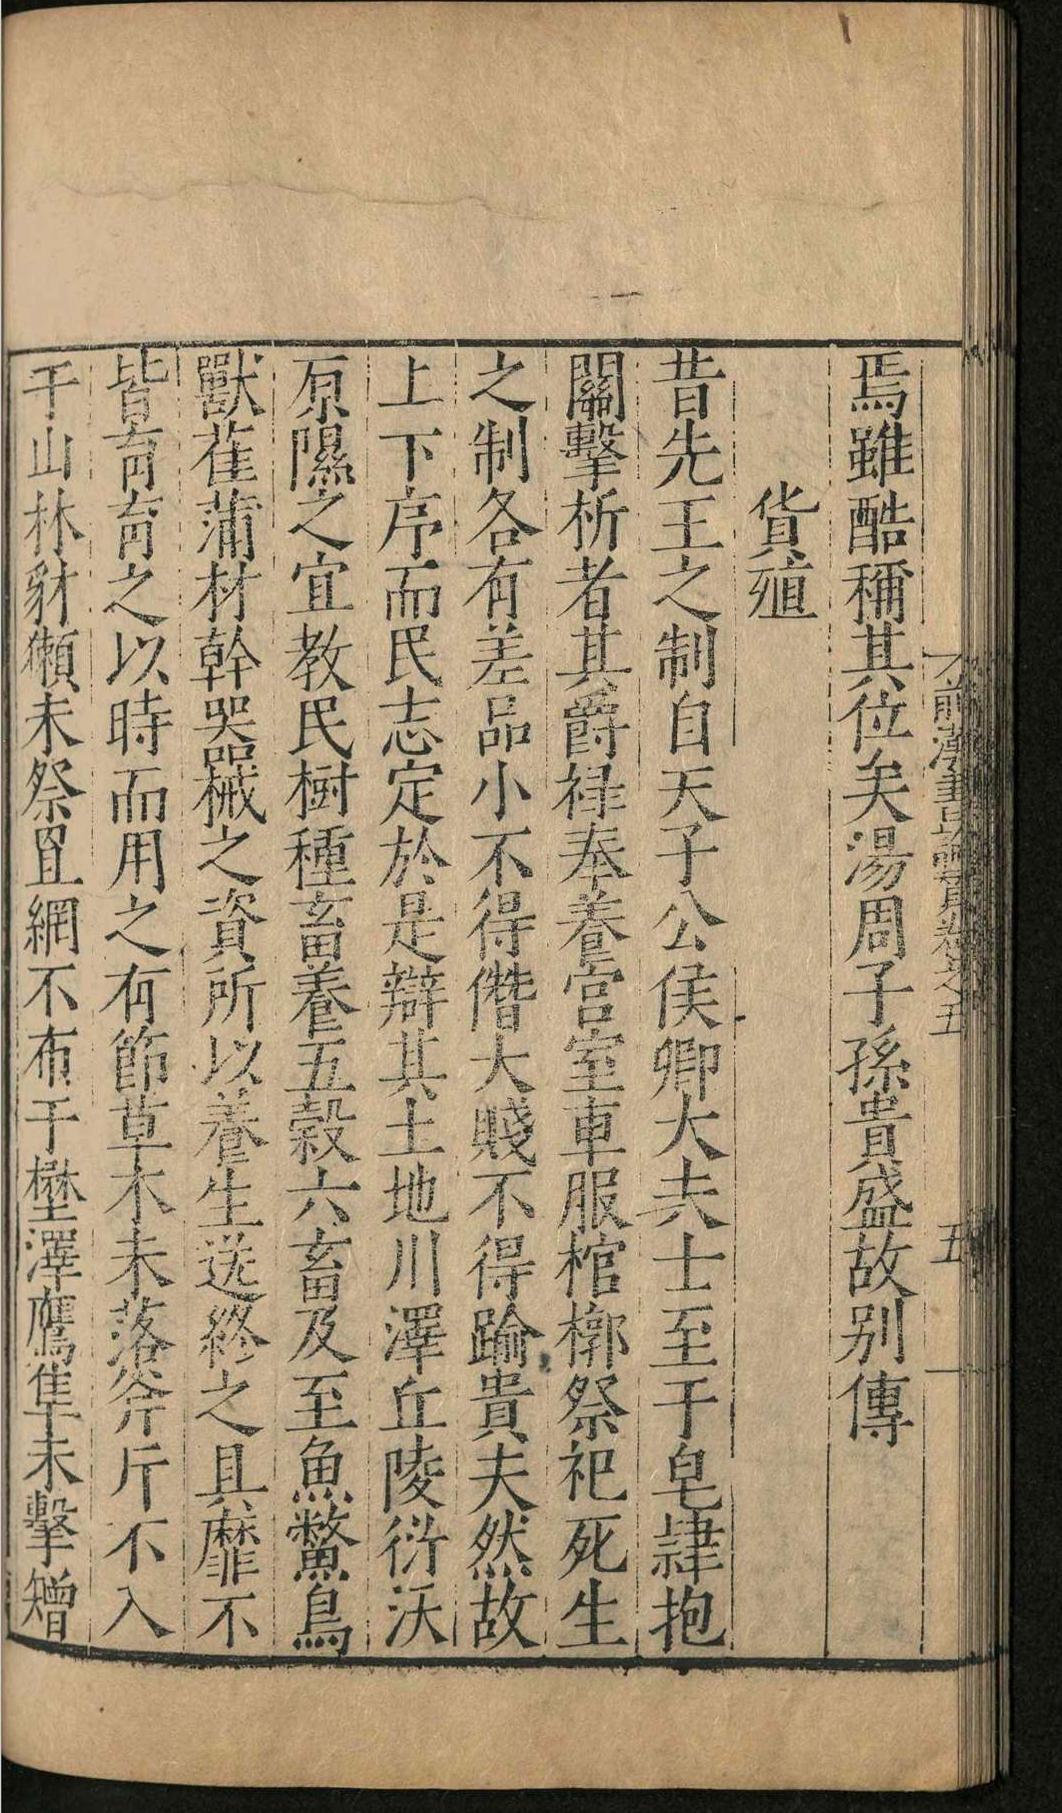 焉雖酷稱其位矣湯周子孫貴盛故别傳
貨殖
昔先王之制自天子公侯卿大夫士至于皂隸抱
關擊柝者其爵禄奉養宮室車服棺槨祭祀死生
之制各有差品小不得僭大賤不得踰貴夫然故
上下序而民志定於是辯其土地川澤丘陵衍沃
原隰之宜教民樹種畜養五穀六畜及至魚鱉鳥
獸雚蒲材幹器械之資所以養生送終之具靡不
皆育育之以時而用之有節草木未落斧斤不入
于山林豺獺未祭罝網不布于壄澤鷹隼未擊矰
前漢書 卷之五
五